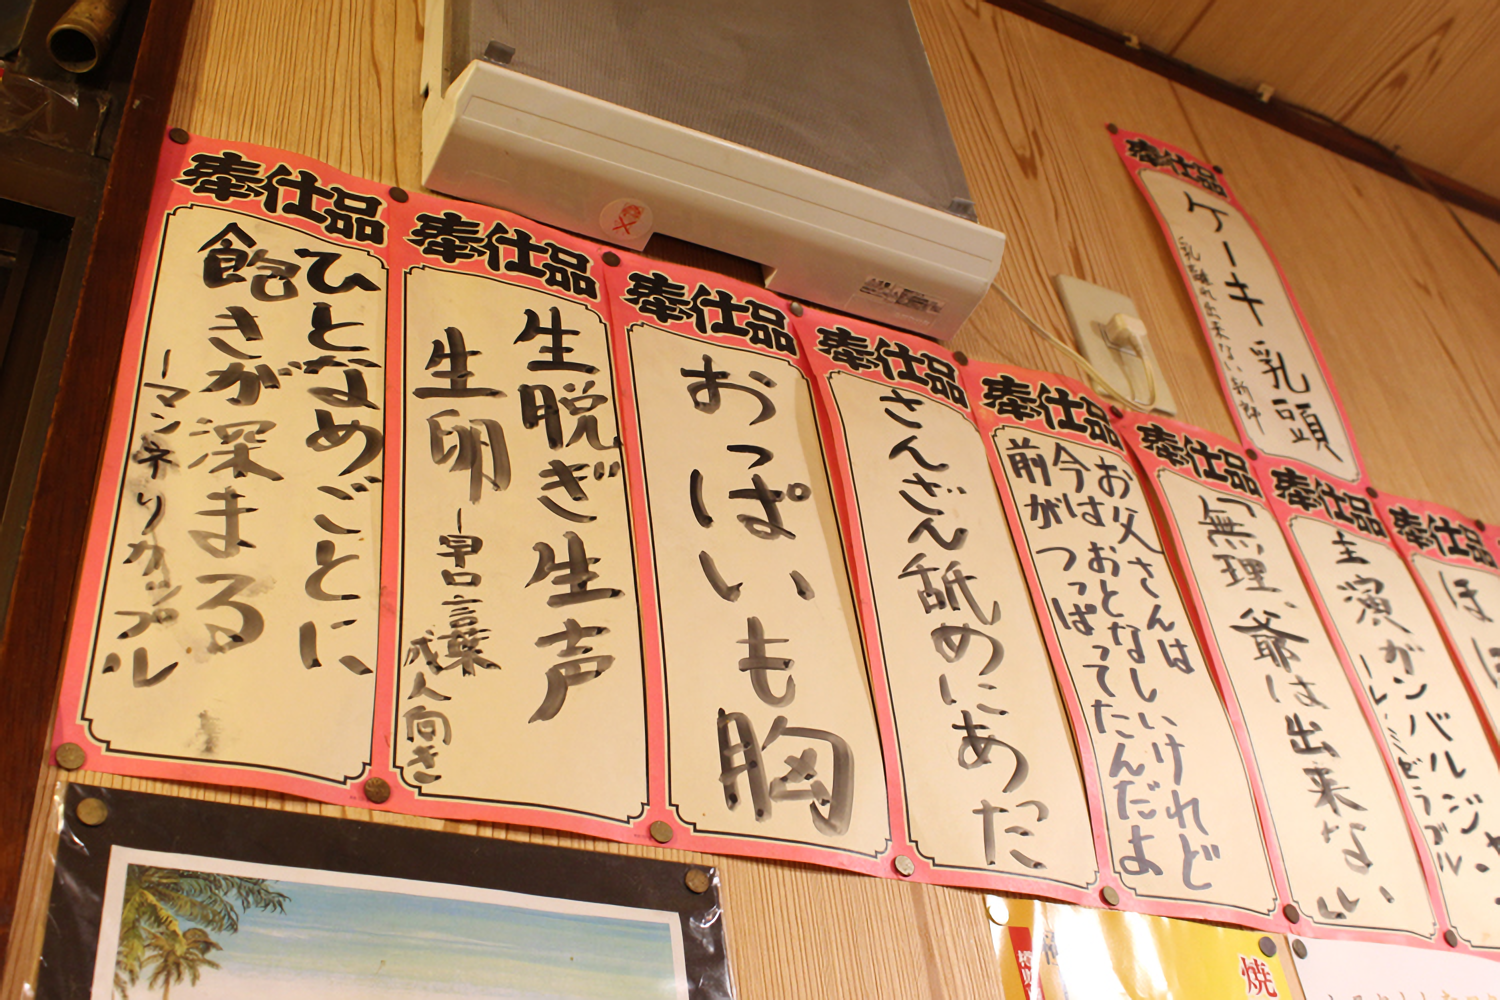 奉仕品
ひとなめごとに
飽きが深まる
ーマンネリカップル
奉仕品
生脱ぎ生声
生卵
ー早口言葉
成人向き
奉仕品
おっぱいも胸
奉仕品
さんざん舐めにあた
奉仕品
お父さんは
今はおとなしいけれど
前がつっぱってたんだよ
奉仕品
「無理、爺は出来ない」
奉仕品
主演ガンバルジャ
奉仕品
ほ
奉仕品
ケーキ乳頭
乳離れ出来ない新郎
焼